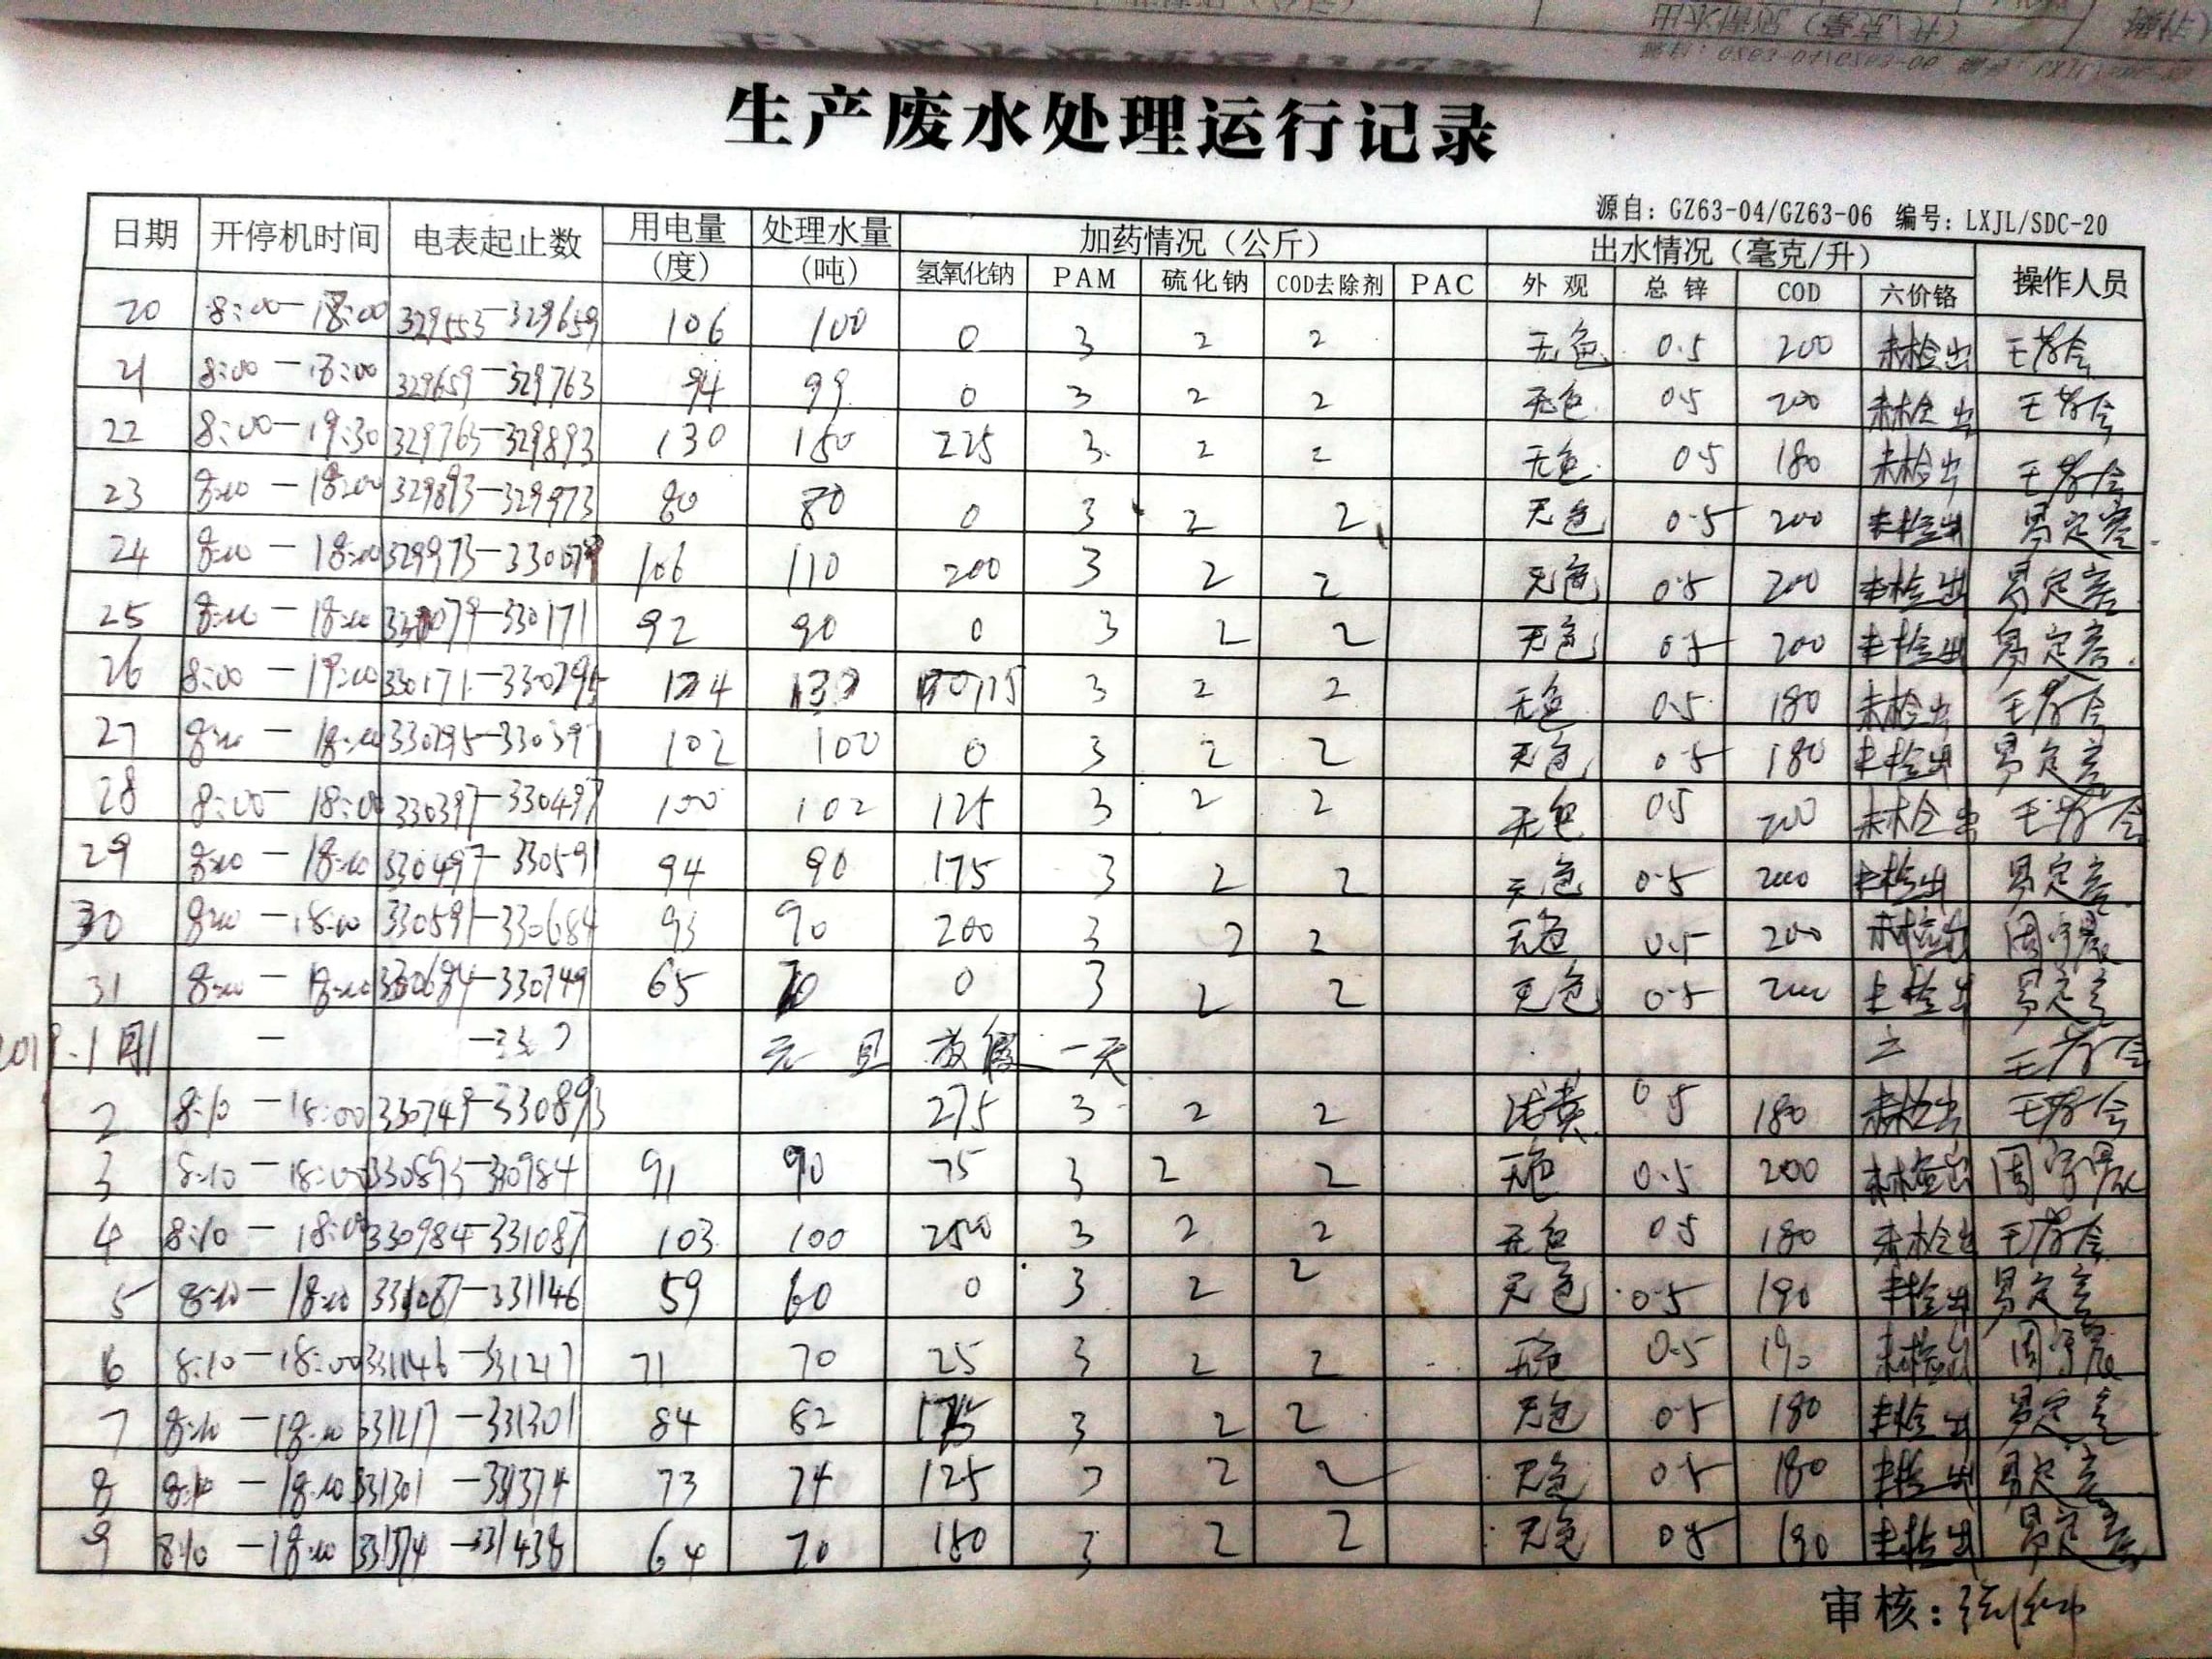 生产废水处理运行记录
源自：GZ63-04/GZ63-06 编号：LXJL/SDC-20
日期 开停机时间 电表起止数 用电量（度） 处理水量（吨） 加药情况（公斤） 出水情况（毫克/升） 操作人员
氢氧化钠 PAM 硫化钠 COD去除剂 PAC 外观 总锌 COD 六价铬
20 8:00-18:00 329553-329659 106 100 0 3 2 2 无色 0.5 200 未检出
21 8:00-18:00 329659-329763 94 99 0 3 2 2 无色 0.5 200 未检出
22 8:00-19:30 329763-329893 130 150 225 3 2 2 无色 0.5 180 未检出
23 8:00-18:00 329893-329973 80 80 0 3 2 2 无色 0.5 200 未检出 易定容
24 8:00-18:00 329973-330079 106 110 200 3 2 2 无色 0.5 200 未检出 易定容
25 8:00-18:00 330079-330171 92 90 0 3 2 2 无色 0.5 200 未检出 易定容
26 8:00-19:00 330171-330295 124 3 2 2 无色 0.5 180 未检出
27 8:00-18:00 330295-330397 102 100 0 3 2 2 无色 0.5 180 未检出 易定容
28 8:00-18:00 330397-330497 100 102 125 3 2 2 无色 0.5 200 未检出
29 8:00-18:00 330497-330591 94 90 175 3 2 2 无色 0.5 200 未检出 易定容
30 8:00-18:00 330591-330684 93 90 200 3 2 2 无色 0.5 200 未检出 周宇晨
31 8:00-18:00 330684-330749 65 70 0 3 2 2 无色 0.5 200 未检出 易定容
2019.1月1 - 元旦放假一天
2 8:10-18:00 330749-330893 275 3 2 2 浅黄 0.5 180 未检出
3 8:10-18:00 330893-330984 91 90 75 3 2 2 无色 0.5 200 未检出 周宇晨
4 8:10-18:00 330984-331087 103 100 250 3 2 2 无色 0.5 180 未检出
5 8:10-18:00 331087-331146 59 60 0 3 2 2 无色 0.5 190 未检出 易定容
6 8:10-18:00 331146-331217 71 70 25 3 2 2 无色 0.5 190 未检出 周宇晨
7 8:10-18:00 331217-331301 84 82 175 3 2 2 无色 0.5 180 未检出 易定容
8 8:10-18:00 331301-331374 73 74 125 3 2 2 无色 0.5 180 未检出 易定容
9 8:10-18:00 331374-331438 64 70 150 3 2 2 无色 0.5 190 未检出 易定容
审核：